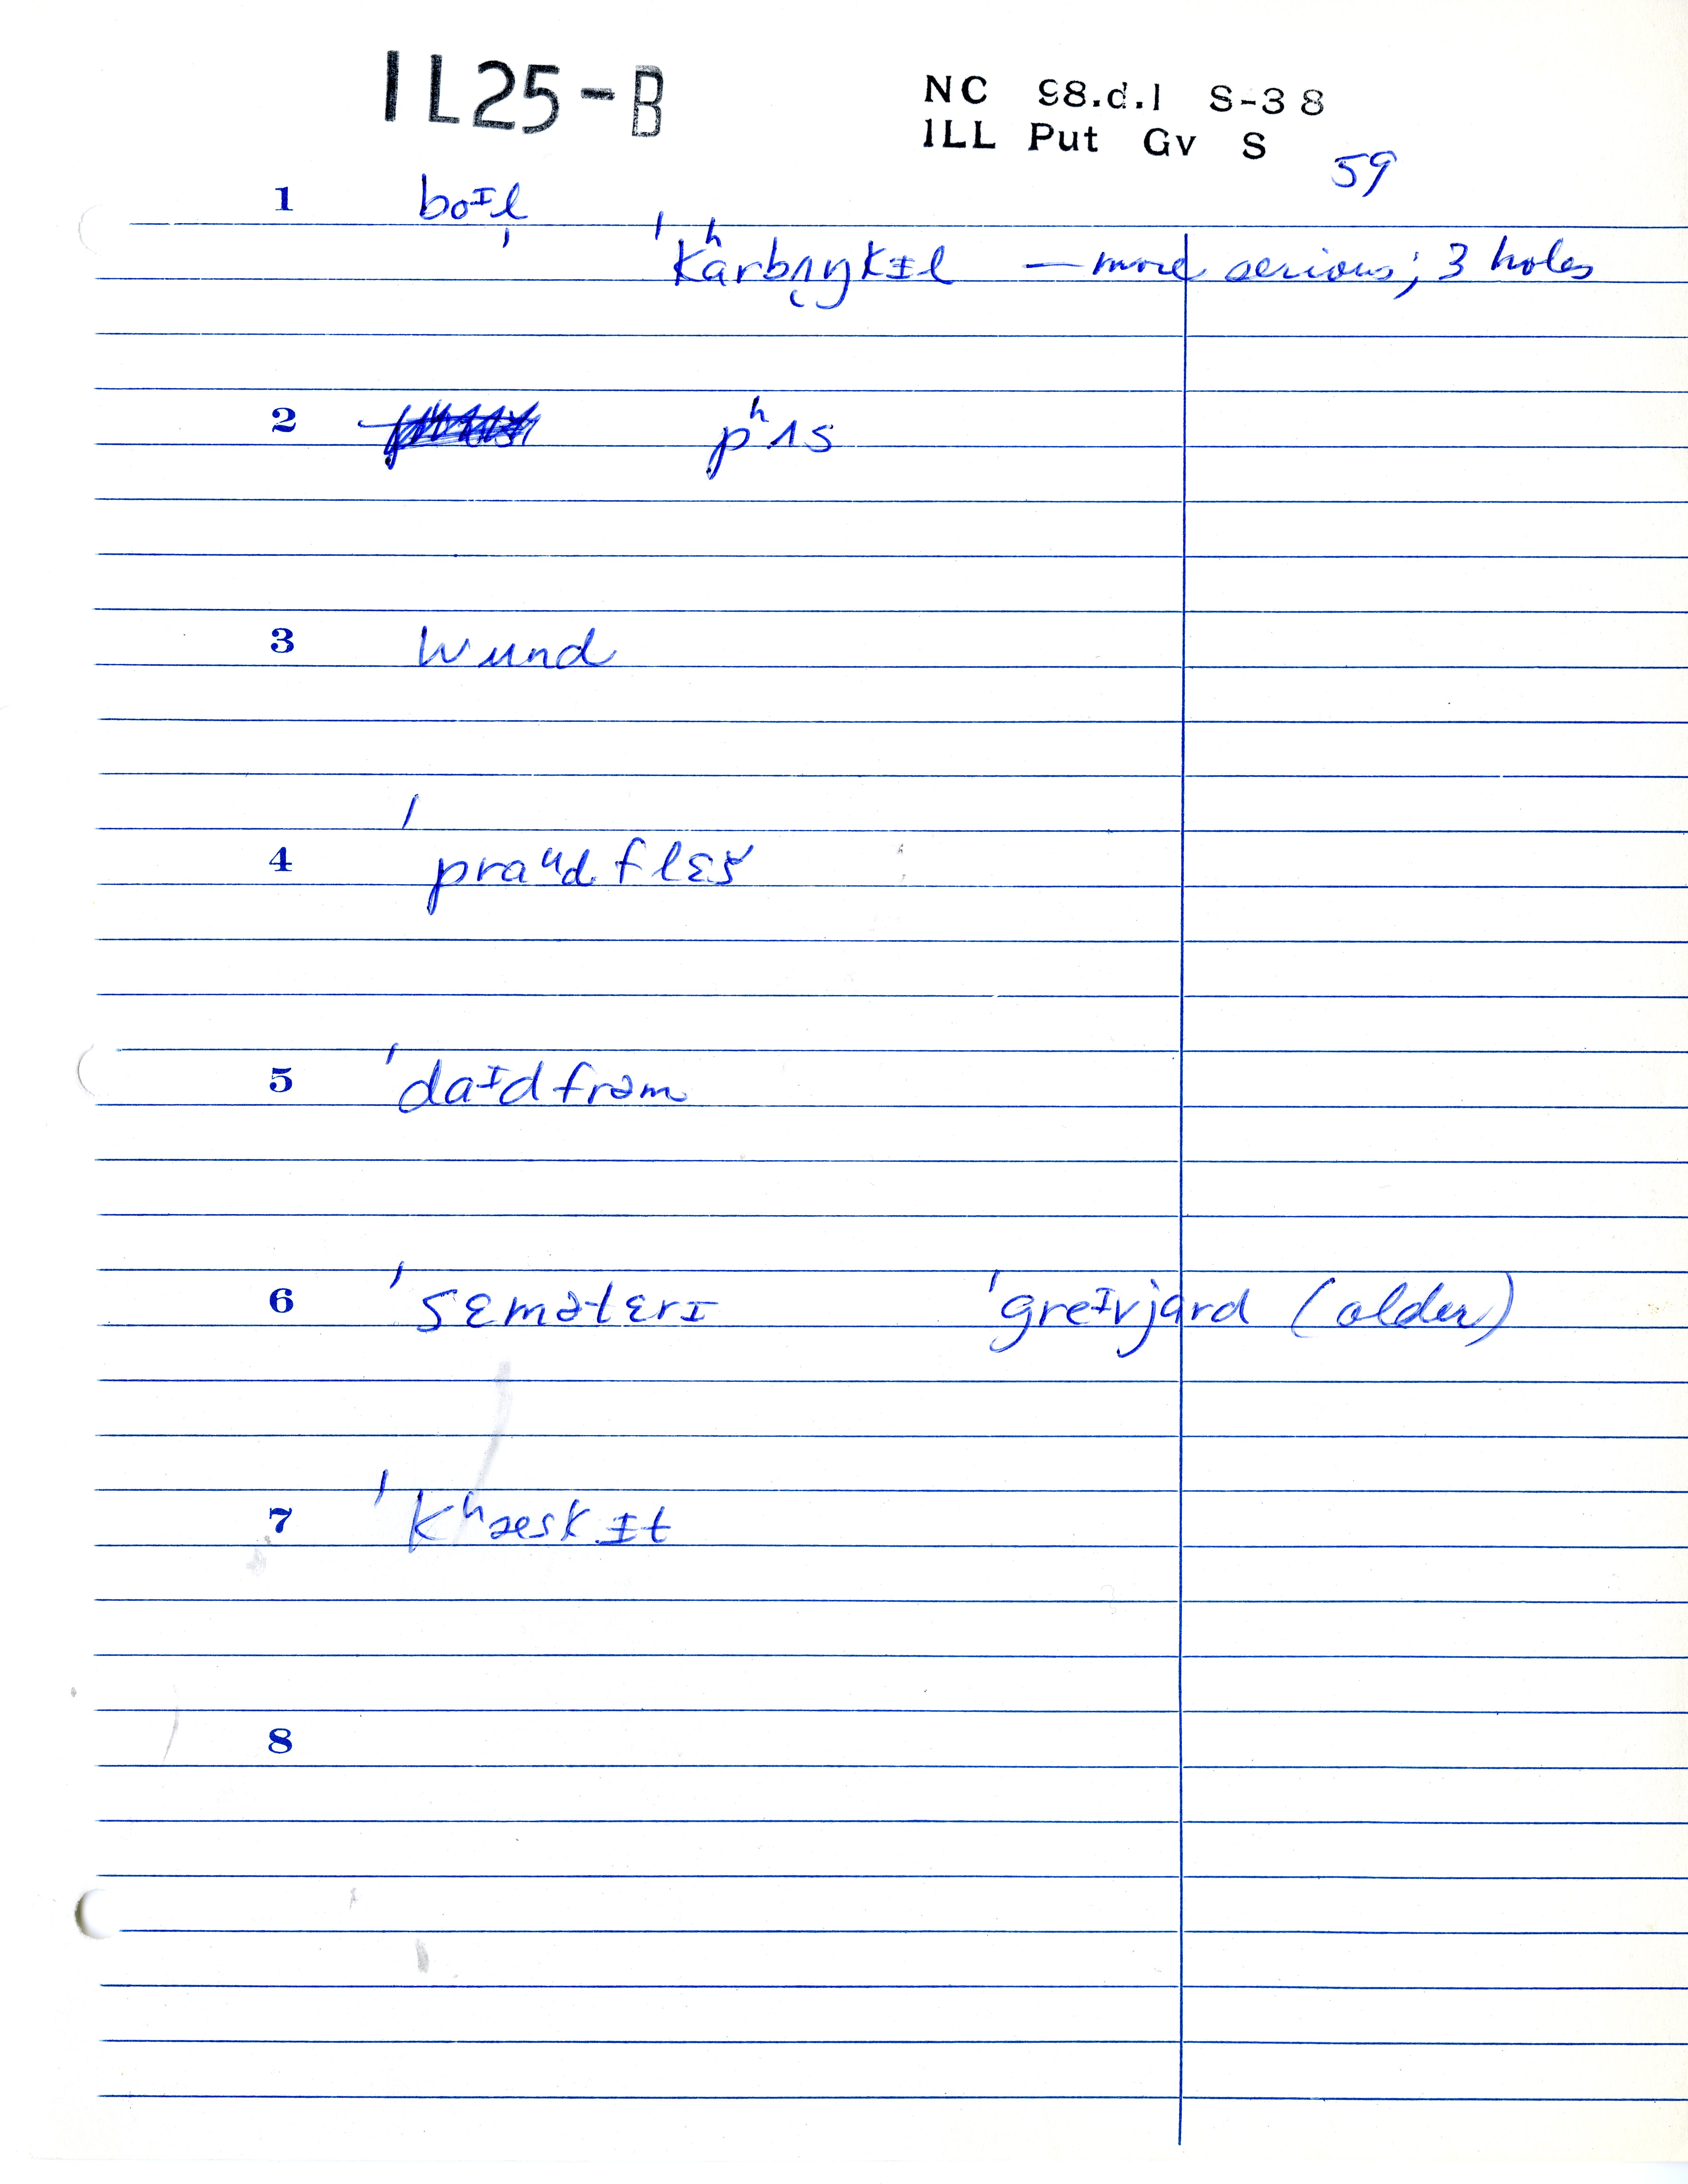 IL25-B
NC 98.d.1 S-38
ILL Put Gv S
59
1 boᴵl̩
ˈkʰarbʌŋkɪl — more serious; 3 holes
2 pʰʌs
3 wund
4 ˈpraᵘd flɛš
5 ˈdaᴵd frəm
6 ˈsɛmətɛrɪ ˈgreᴵvjard (older)
7 ˈkʰæskɪt
8